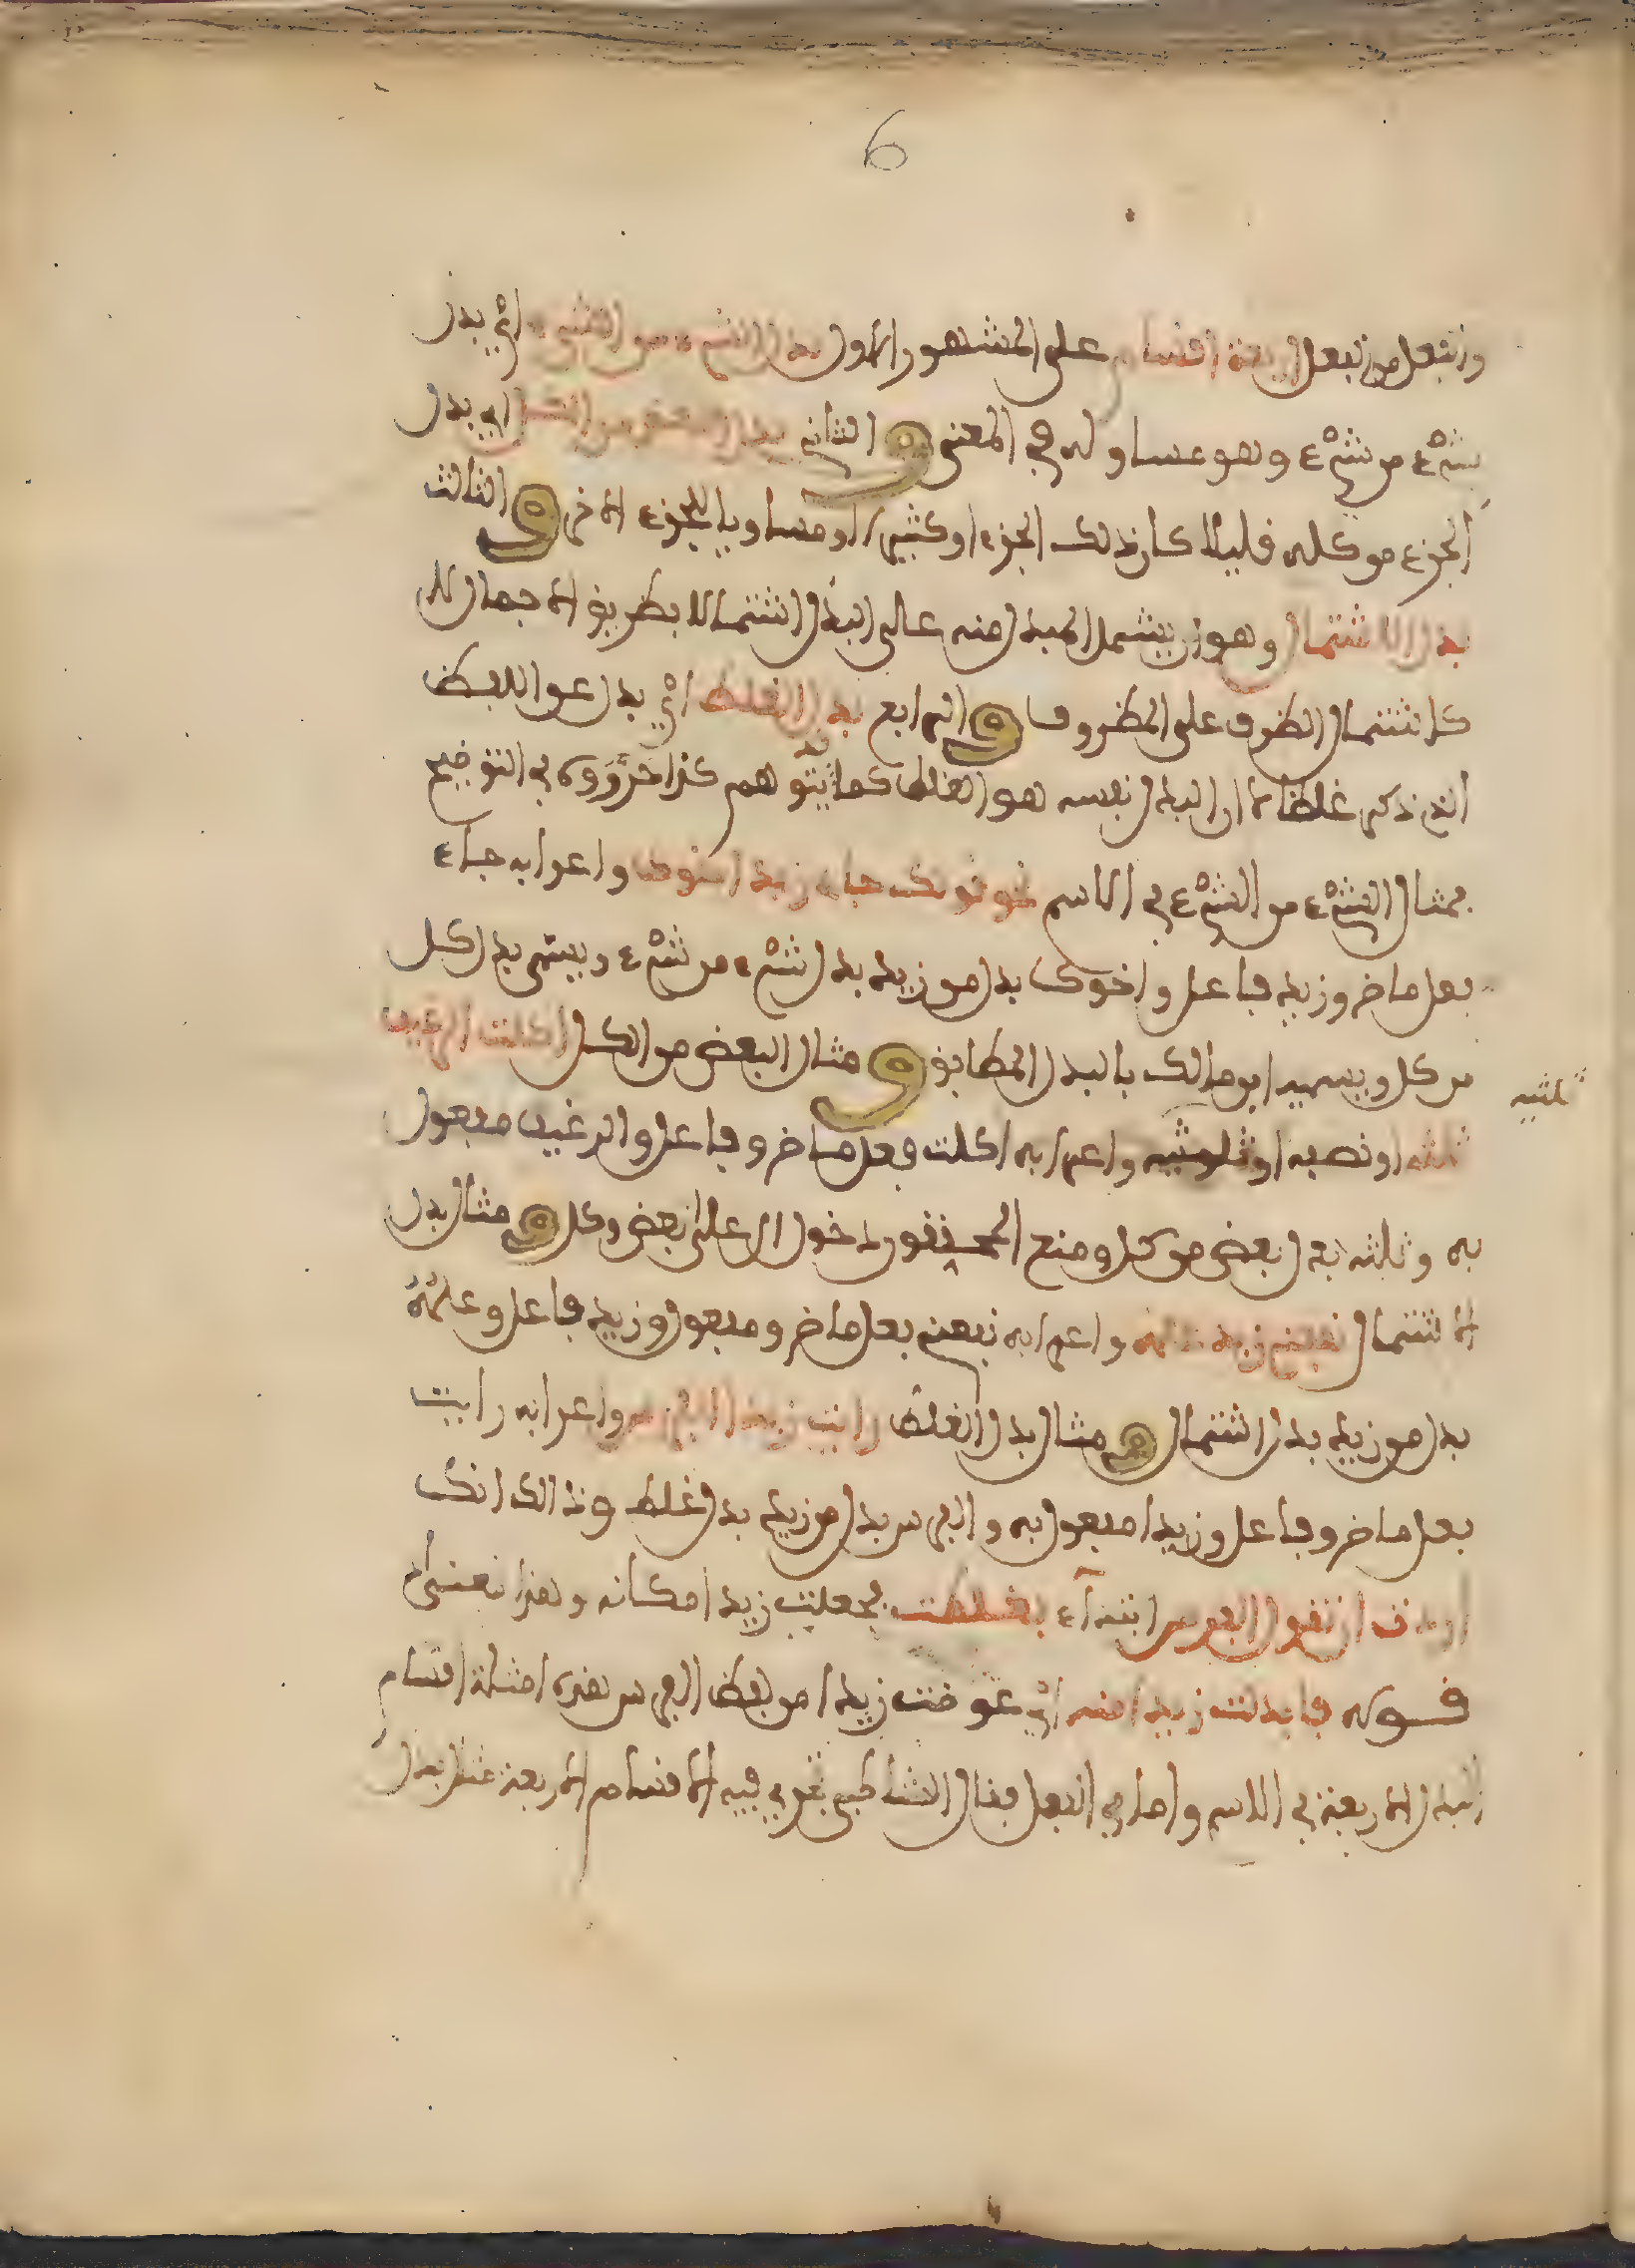 6
والفعل من الفعل اربعة اقسام على المشهور الاول بدل الشيء من الشيء اي بدل
شيء من شيء وهو مساو له في المعنى و الثاني بدل البعض من الكل اي بدل
الجزء من كله قليلا كان ذلك الجزء او كثيرا او مساويا للجزء الاخر و الثالث
بدل الاشتمال وهو ان يشمل المبدل منه على البدل اشتمالا بطريق الاجمال لا
كاشتمال الظرف على المظروف و الرابع بدل الغلط اي بدل عن اللفظ
الذي ذكر غلطا لا ان البدل نفسه هو الغلط كما يتوهم كذا حرروه في التوضيح
فمثال الشيء من الشيء في الاسم نحو قولك جاء زيد اخوك واعرابه جاء
فعل ماض وزيد فاعل واخوك بدل من زيد بدل شيء من شيء ويسمى بدل كل
من كل ويسميه ابن مالك بالبدل المطابق و مثال البعض من الكل اكلت الرغيف
ثلثيه
ثلثه او نصفه او ثلوثيه واعرابه اكلت فعل ماض وفاعل والرغيف مفعول
به وثلثه بدل بعض من كل ومنع المحققون دخول ال على بعض وكل و مثال بدل
الاشتمال نفعني زيد علمه واعرابه نفعني فعل ماض ومفعول وزيد فاعل وعلمه
بدل من زيد بدل اشتمال و مثال بدل الغلط رايت زيدا الفرس واعرابه رايت
فعل ماض وفاعل وزيدا مفعول به والفرس بدل من زيد بدل غلط وذالك انك
اردت ان تقول الفرس ابتداء فغلطت فجعلت زيدا مكانه وهذا معنى
قوله فابدلت زيدا منه اي عوضت زيدا من لفظ الفرس هذه امثلة اقسام
البدل الاربعة في الاسم واما في الفعل فقال الشاطبي تجري فيه الاقسام الاربعة مثل بدل